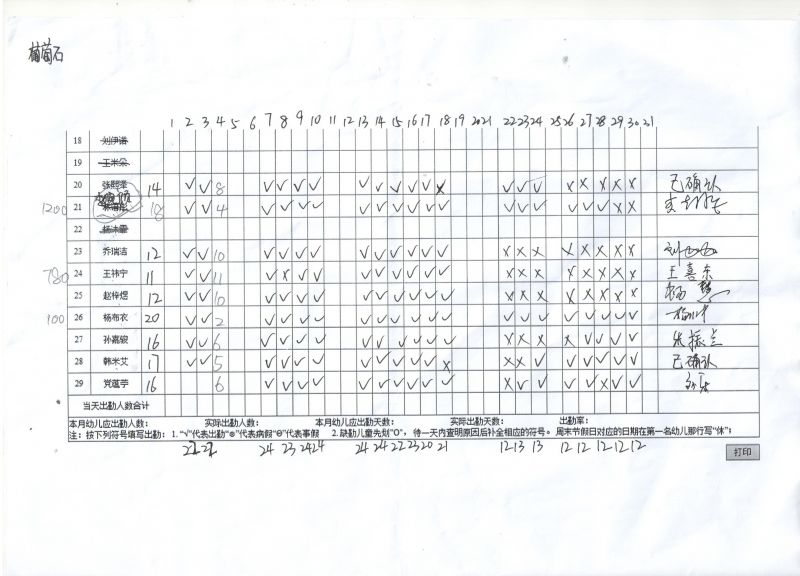 葡萄石
1 2 3 4 5 6 7 8 9 10 11 12 13 14 15 16 17 18 19 20 21 22 23 24 25 26 27 28 29 30 31
18 刘伊诺
19 王米朵
20 14 √ √ 8 √ √ √ √ √ √ √ √ √ × √ √ √ × × × × × 已确认
1200 21 18 √ √ 4 √ √ √ √ √ √ √ √ √ √ √ √ √ √ √ √ × ×
22
23 乔瑞洁 12 √ √ 10 √ √ √ √ √ √ √ √ √ √ × × × × × × × ×
780 24 王祎宁 11 √ √ 11 √ × √ √ √ √ √ √ √ √ × × × × × × × × 王喜东
25 赵梓煜 12 √ √ 10 √ √ √ √ √ √ √ √ √ √ × × × × × × × ×
100 26 杨布衣 20 √ √ 2 √ √ √ √ √ √ √ √ √ √ √ √ √ √ √ √ √ √
27 孙嘉骏 16 √ √ 6 √ √ √ √ √ √ √ √ √ √ × × × × √ √ √ √
28 韩米艾 17 √ √ 5 √ √ √ √ √ √ √ √ √ × × × √ √ √ √ √ √ 已确认
29 党莛苧 16 6 √ √ √ √ √ √ √ √ √ √ × √ √ √ √ × √ √
当天出勤人数合计
本月幼儿应出勤人数: 实际出勤人数: 本月幼儿应出勤天数: 实际出勤天数: 出勤率:
注: 按下列符号填写出勤: 1. "√"代表出勤"⊗"代表病假"Θ"代表事假 2. 缺勤儿童先划"O", 待一天内查明原因后补全相应的符号。 周末节假日对应的日期在第一名幼儿那行写"休";
22 22 24 23 24 24 24 24 22 23 20 21 12 13 13 12 12 12 12 12
打印